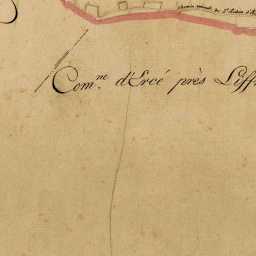 Chemin vicinal de St Aubin d'
Com.ne d'Ercé près Liff